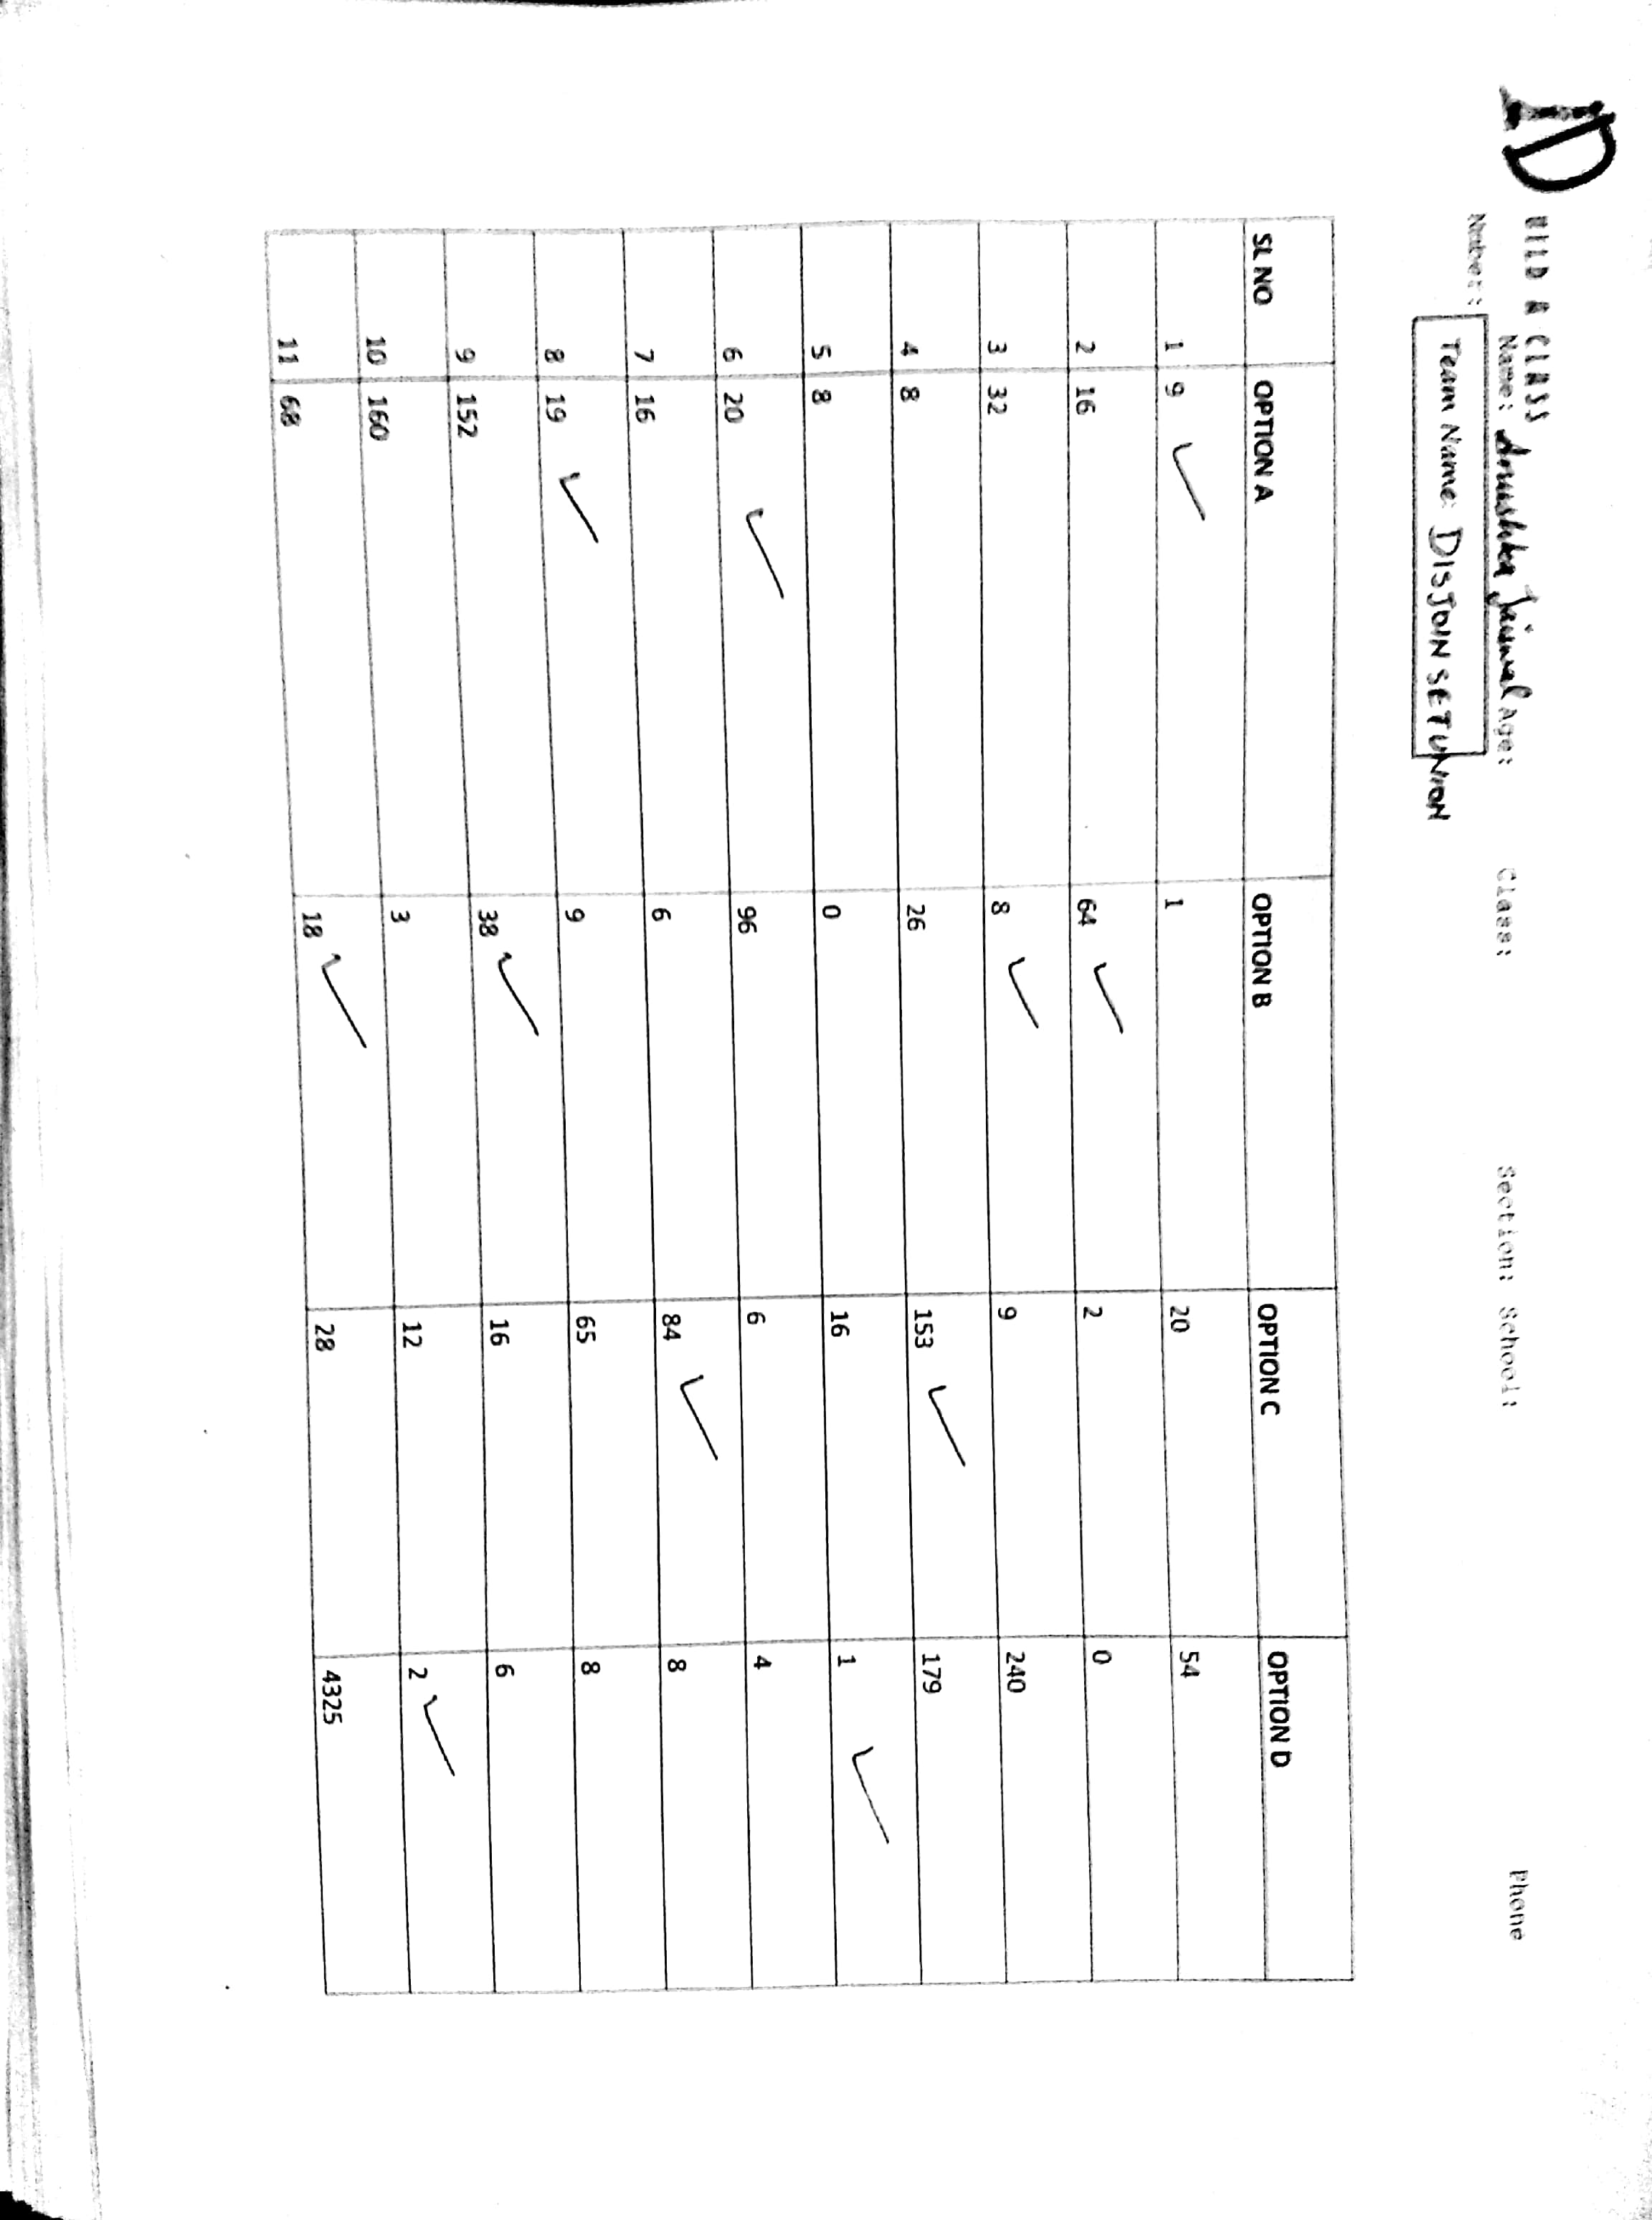 BUILD A CLASS
Name: Anushka Jaiswal Age: Class: Section: School: Phone
Number:
Team Name: DISJOINSETUNION
SL NO OPTION A OPTION B OPTION C OPTION D
1 9 ✓ 1 20 54
2 16 64 ✓ 2 0
3 32 8 ✓ 9 240
4 8 26 153 ✓ 179
5 8 0 16 1 ✓
6 20 ✓ 96 6 4
7 16 6 84 ✓ 8
8 19 ✓ 9 65 8
9 152 38 ✓ 16 6
10 160 3 12 2 ✓
11 68 18 ✓ 28 4325